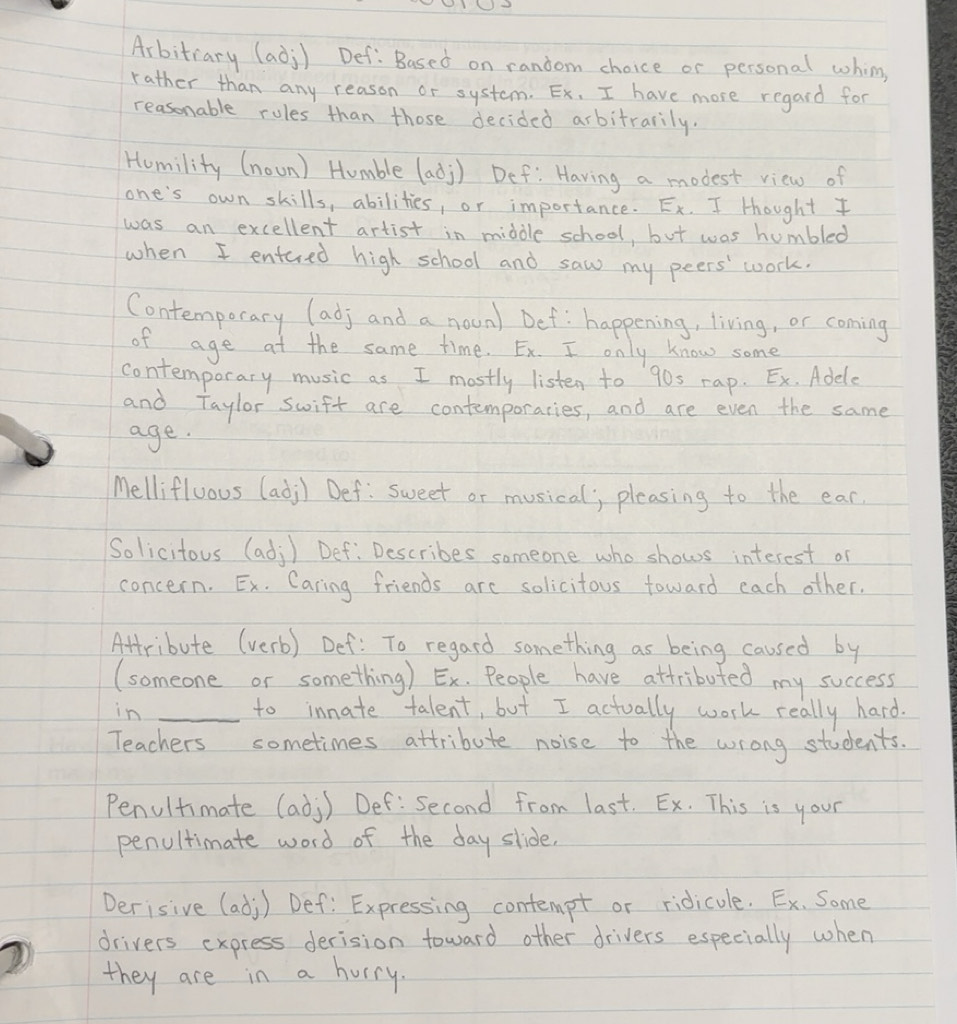 Arbitrary (adj) Def: Based on random choice or personal whim,
rather than any reason or system. Ex. I have more regard for
reasonable rules than those decided arbitrarily.
Humility (noun) Humble (adj) Def: Having a modest view of
one's own skills, abilities, or importance. Ex. I thought I
was an excellent artist in middle school, but was humbled
when I entered high school and saw my peers' work.
Contemporary (adj and a noun) Def: happening, living, or coming
of age at the same time. Ex. I only know some
contemporary music as I mostly listen to '90s rap. Ex. Adele
and Taylor Swift are contemporaries, and are even the same
age.
Mellifluous (adj) Def: Sweet or musical; pleasing to the ear.
Solicitous (adj) Def: Describes someone who shows interest or
concern. Ex. Caring friends are solicitous toward each other.
Attribute (verb) Def: To regard something as being caused by
(someone or something) Ex. People have attributed my success
in ______ to innate talent, but I actually work really hard.
Teachers sometimes attribute noise to the wrong students.
Penultimate (adj) Def: Second from last. Ex. This is your
penultimate word of the day slide.
Derisive (adj) Def: Expressing contempt or ridicule. Ex. Some
drivers express derision toward other drivers especially when
they are in a hurry.